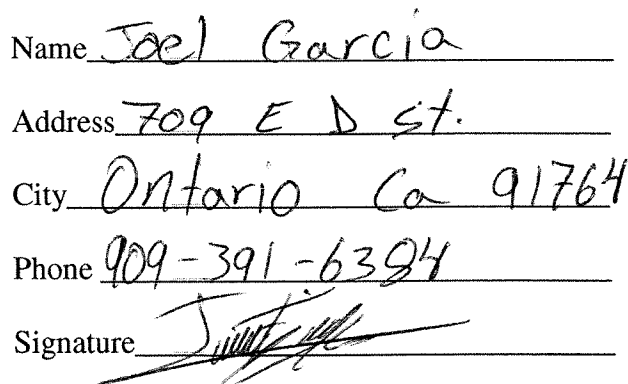 Name Joel Garcia
Address 709 E D st.
City Ontario Ca 91764
Phone 909-391-6384
Signature